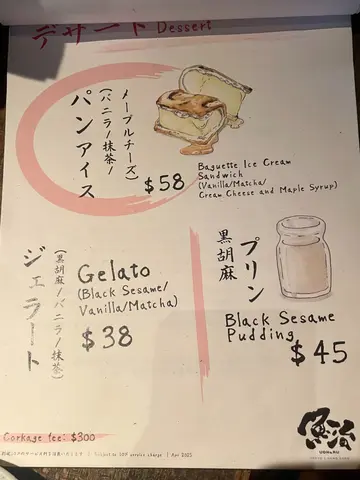 デザート Dessert
パンアイス
(バニラ/抹茶/
メープルチーズ)
$58
Baguette Ice Cream
Sandwich
(Vanilla/Matcha/
Cream Cheese and Maple Syrup)
ジェラート
(黒胡麻/バニラ/抹茶)
Gelato
(Black Sesame/
Vanilla/Matcha)
$38
黒胡麻
プリン
Black Sesame
Pudding
$45
Corkage fee: $300
Subject to 10% service charge | Apr 2025
魚治
UOHARU